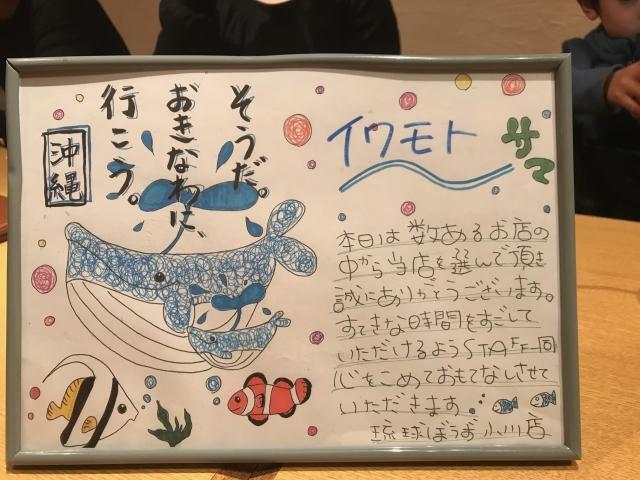 そうだ。
おきなわに、
行こう。
沖縄
イワモト
サマ
本日は数あるお店の
中から当店を選んで頂き
誠にありがとうございます。
すてきな時間をすごして
いただけるようSTAFF一同
心をこめておもてなしさせて
いただきます
琉球ぼうず小川店